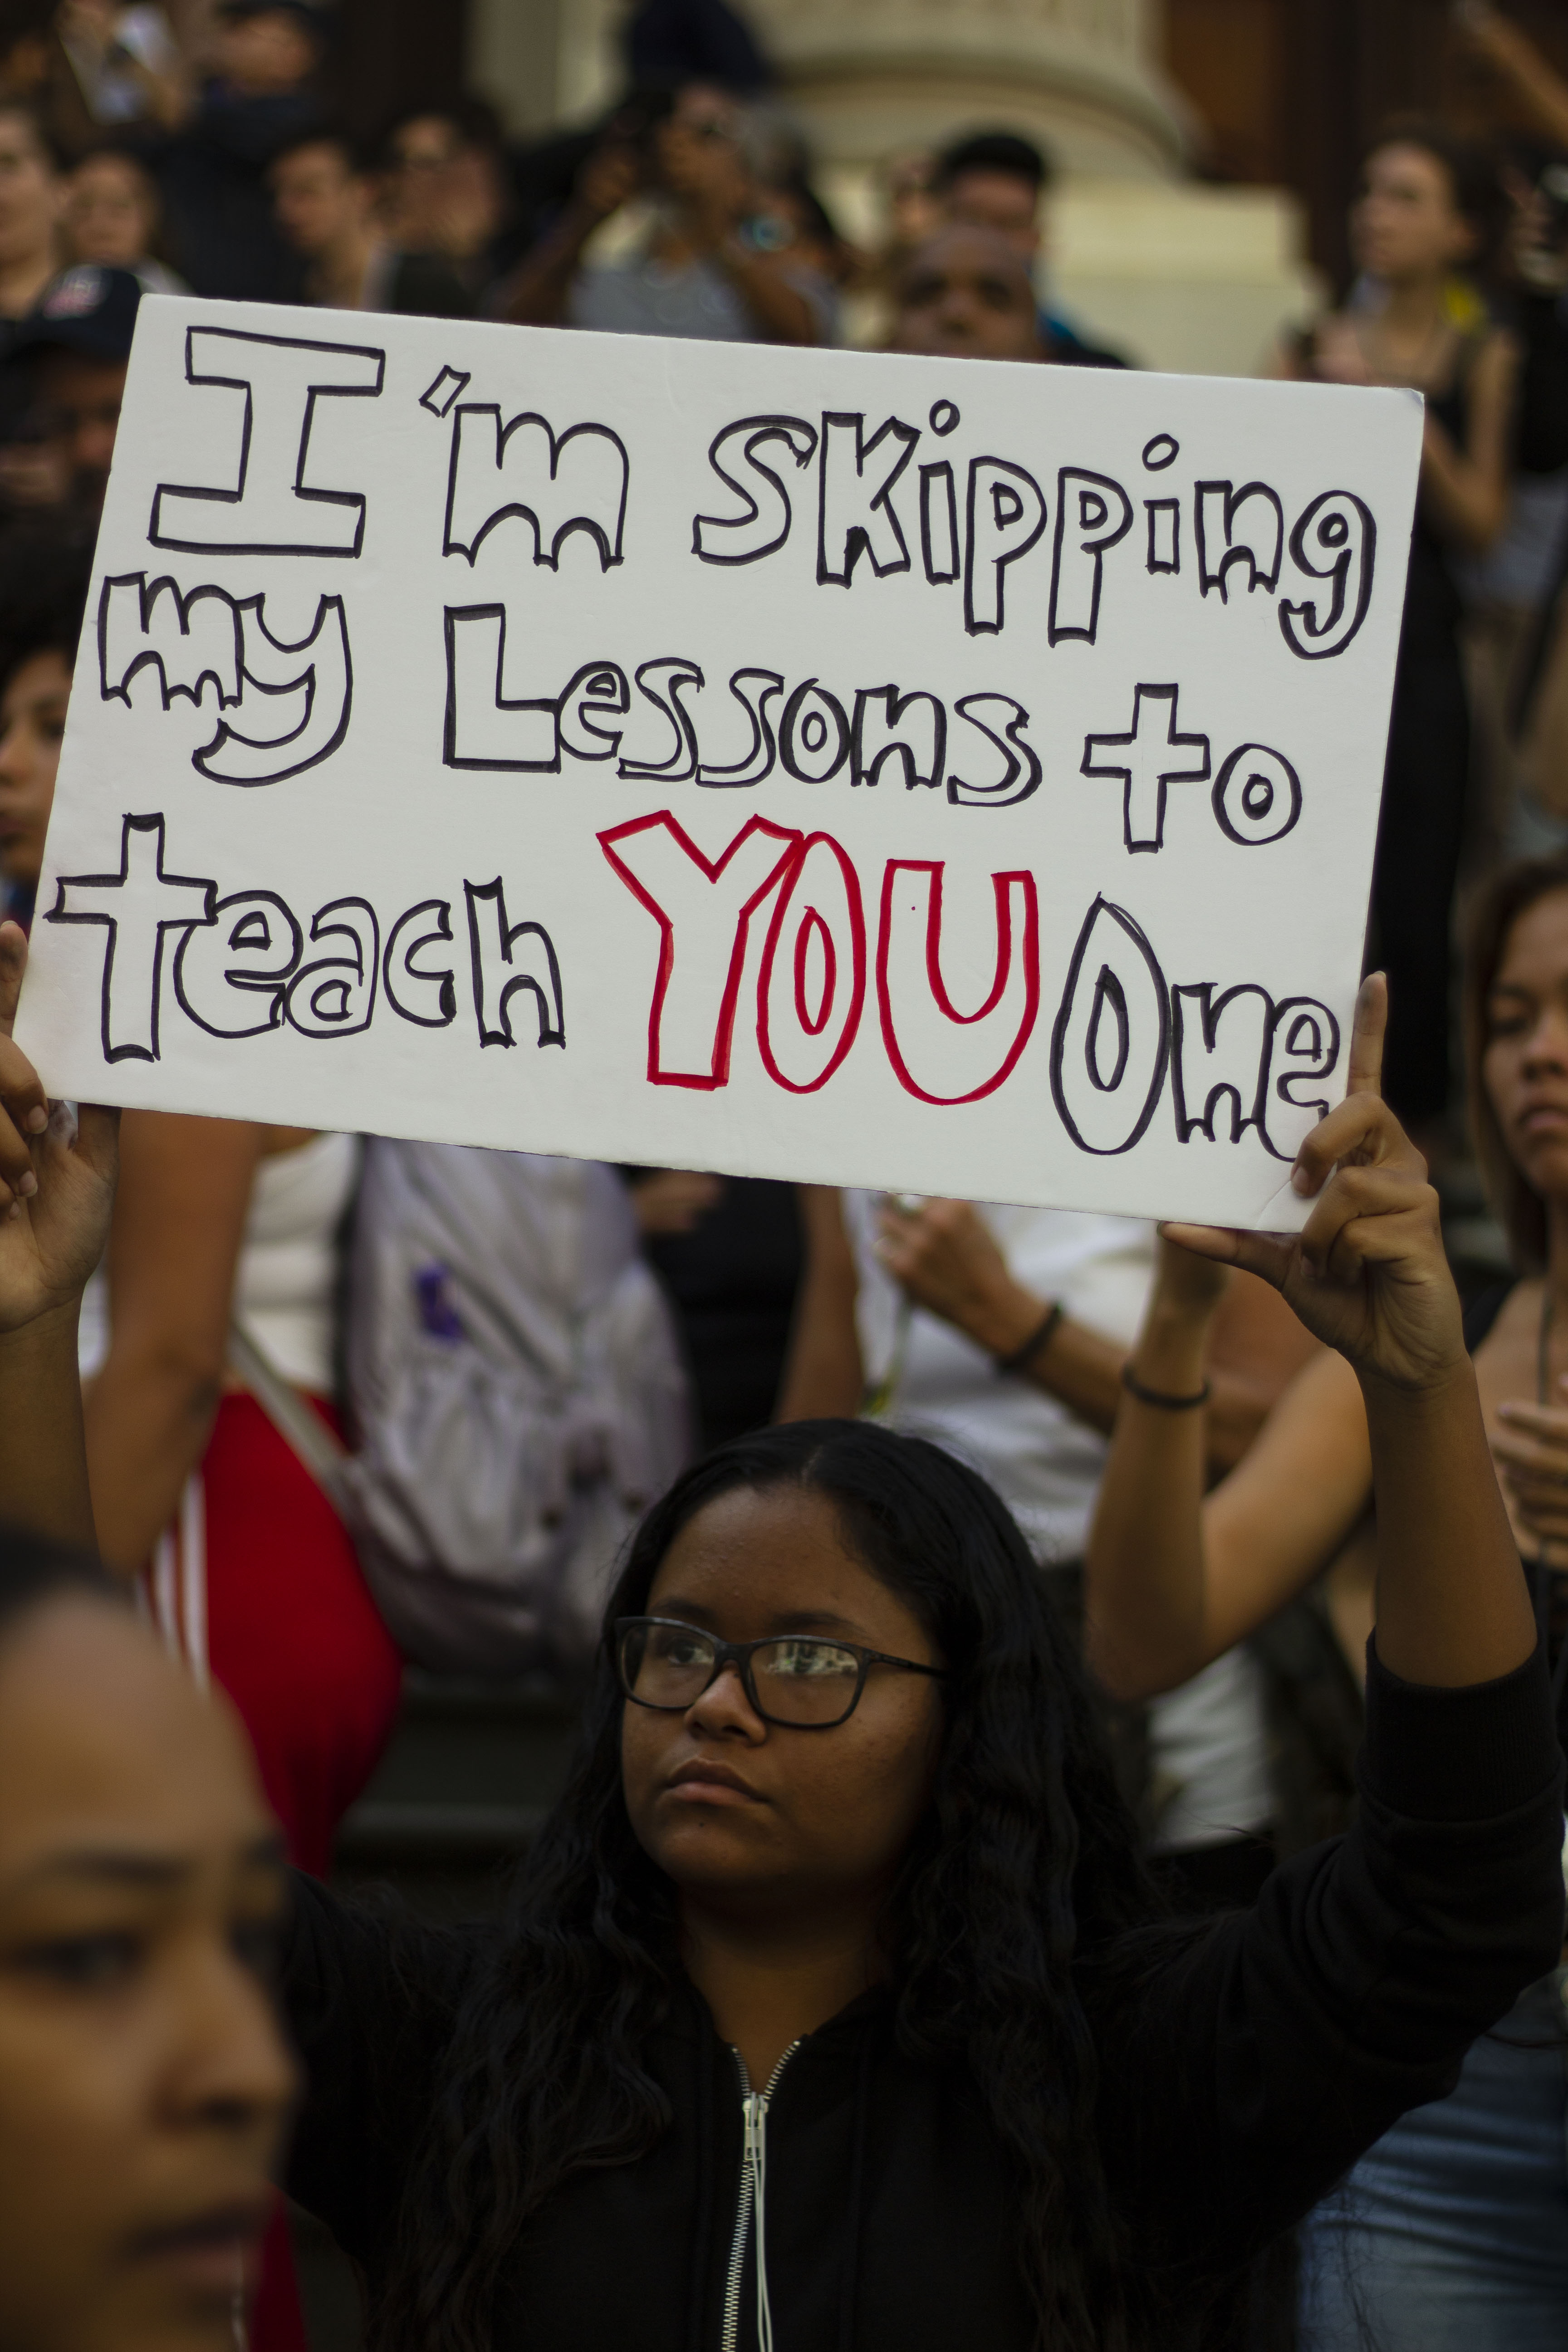 I'm Skipping
my Lessons to
teach YOU One